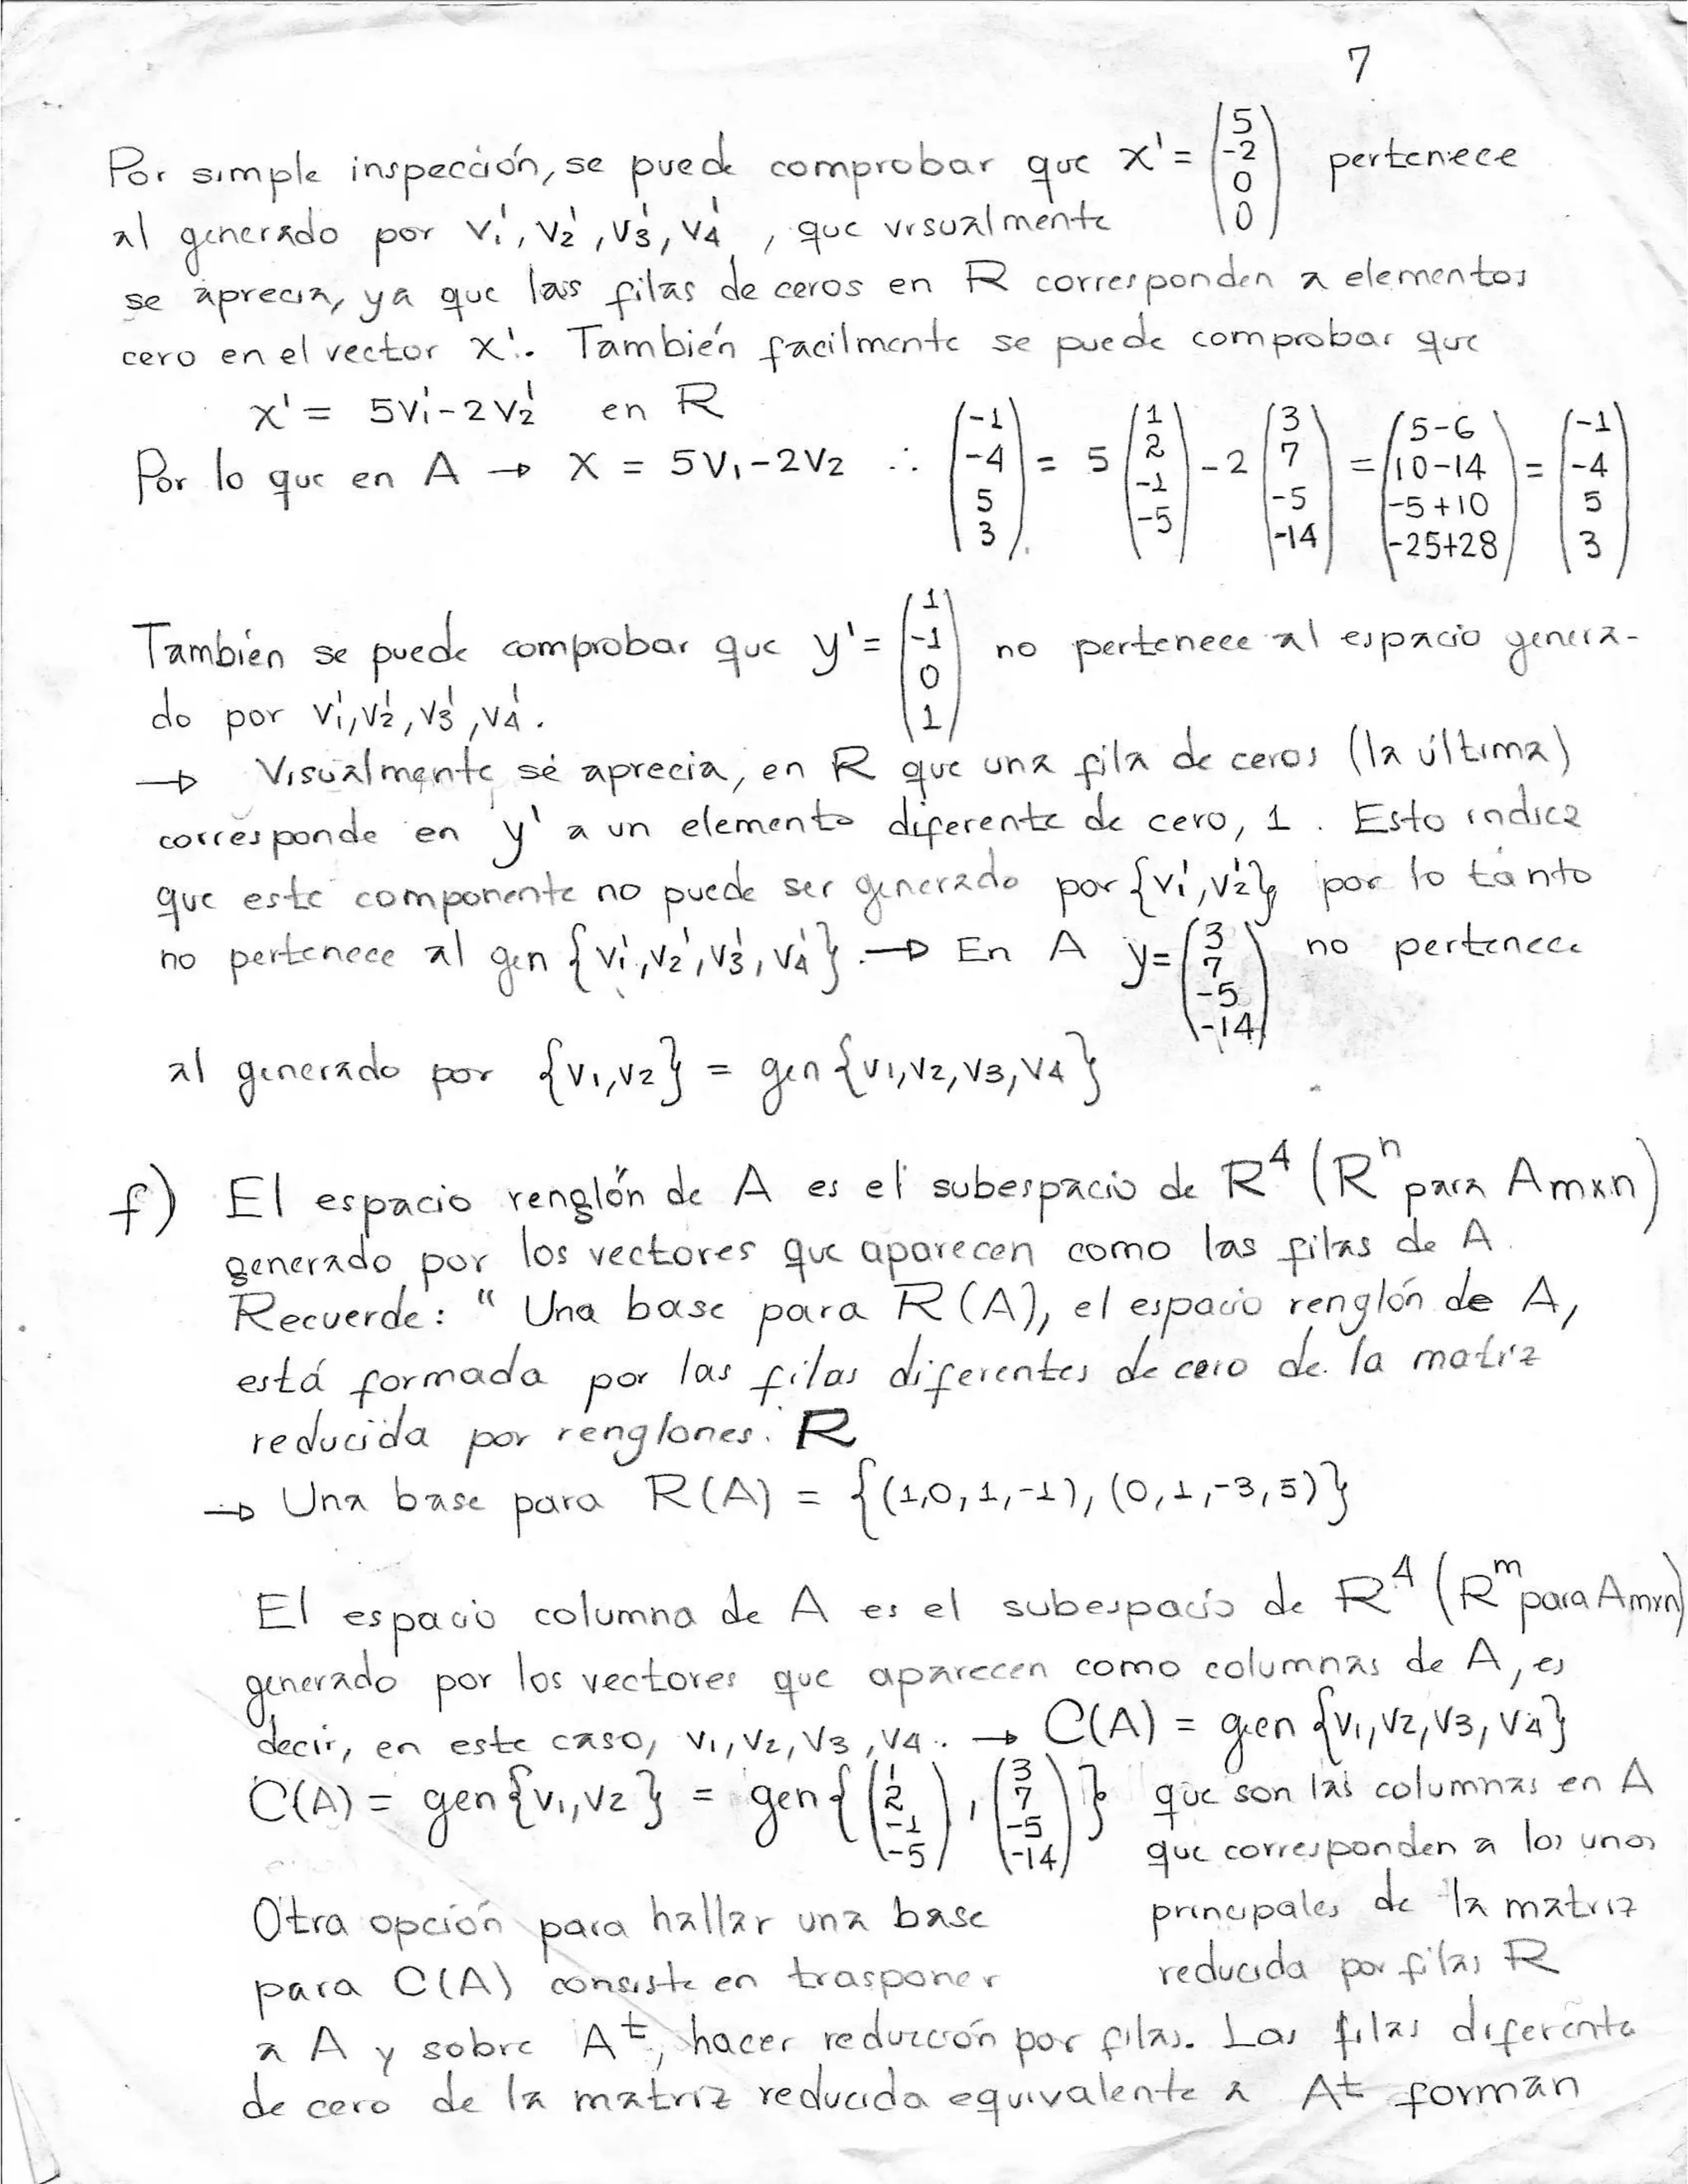 7
Por simple inspección, se puede comprobar que x' = (5 -2 0 0) pertenece
al generado por v1', v2', v3', v4', que visualmente
se aprecia, ya que las filas de ceros en R corresponden a elementos
cero en el vector x'. También facilmente se puede comprobar que
x' = 5v1' - 2v2' en R
Por lo que en A → x = 5v1 - 2v2 ∴ (-1 -4 5 3) = 5 (1 2 -1 -5) - 2 (3 7 -5 -14) = (5-6 10-14 -5+10 -25+28) = (-1 -4 5 3)
También se puede comprobar que y' = (1 -1 0 1) no pertenece al espacio genera-
do por v1', v2', v3', v4'.
→ Visualmente se aprecia, en R que una fila de ceros (la última)
corresponde en y' a un elemento diferente de cero, 1. Esto indica
que este componente no puede ser generado por {v1', v2'}, por lo tanto
no pertenece al gen {v1', v2', v3', v4'}. → En A y = (3 7 -5 -14) no pertenece
al generado por {v1, v2} = gen {v1, v2, v3, v4}
f) El espacio renglón de A es el subespacio de R⁴ (Rⁿ para Amxn)
generado por los vectores que aparecen como las filas de A.
Recuerde: " Una base para R(A), el espacio renglón de A,
está formada por las filas diferentes de cero de la matriz
reducida por renglones. R
→ Una base para R(A) = {(1,0,1,-1), (0,1,-3,5)}
El espacio columna de A es el subespacio de R⁴ (Rᵐ para Amxn)
generado por los vectores que aparecen como columnas de A, es
decir, en este caso, v1, v2, v3, v4. → C(A) = gen {v1, v2, v3, v4}
C(A) = gen {v1, v2} = gen {(1 2 -1 -5), (3 7 -5 -14)} que son las columnas en A
que corresponden a los unos
Otra opción para hallar una base principales de la matriz
para C(A) consiste en trasponer reducida por filas R
a A y sobre Aᵗ, hacer reducción por filas. Las filas diferente
de cero de la matriz reducida equivalente a Aᵗ forman